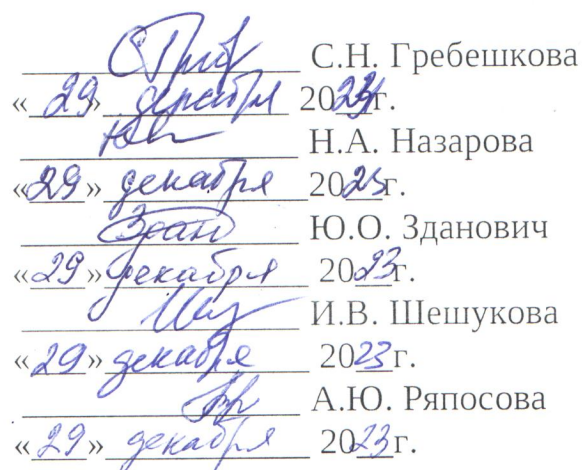 С.Н. Гребешкова
«29» декабря 20 г.
Н.А. Назарова
«29» декабря 2023г.
Ю.О. Зданович
«29» декабря 2023г.
И.В. Шешукова
«29» декабря 2023г.
А.Ю. Ряпосова
«29» декабря 2023г.